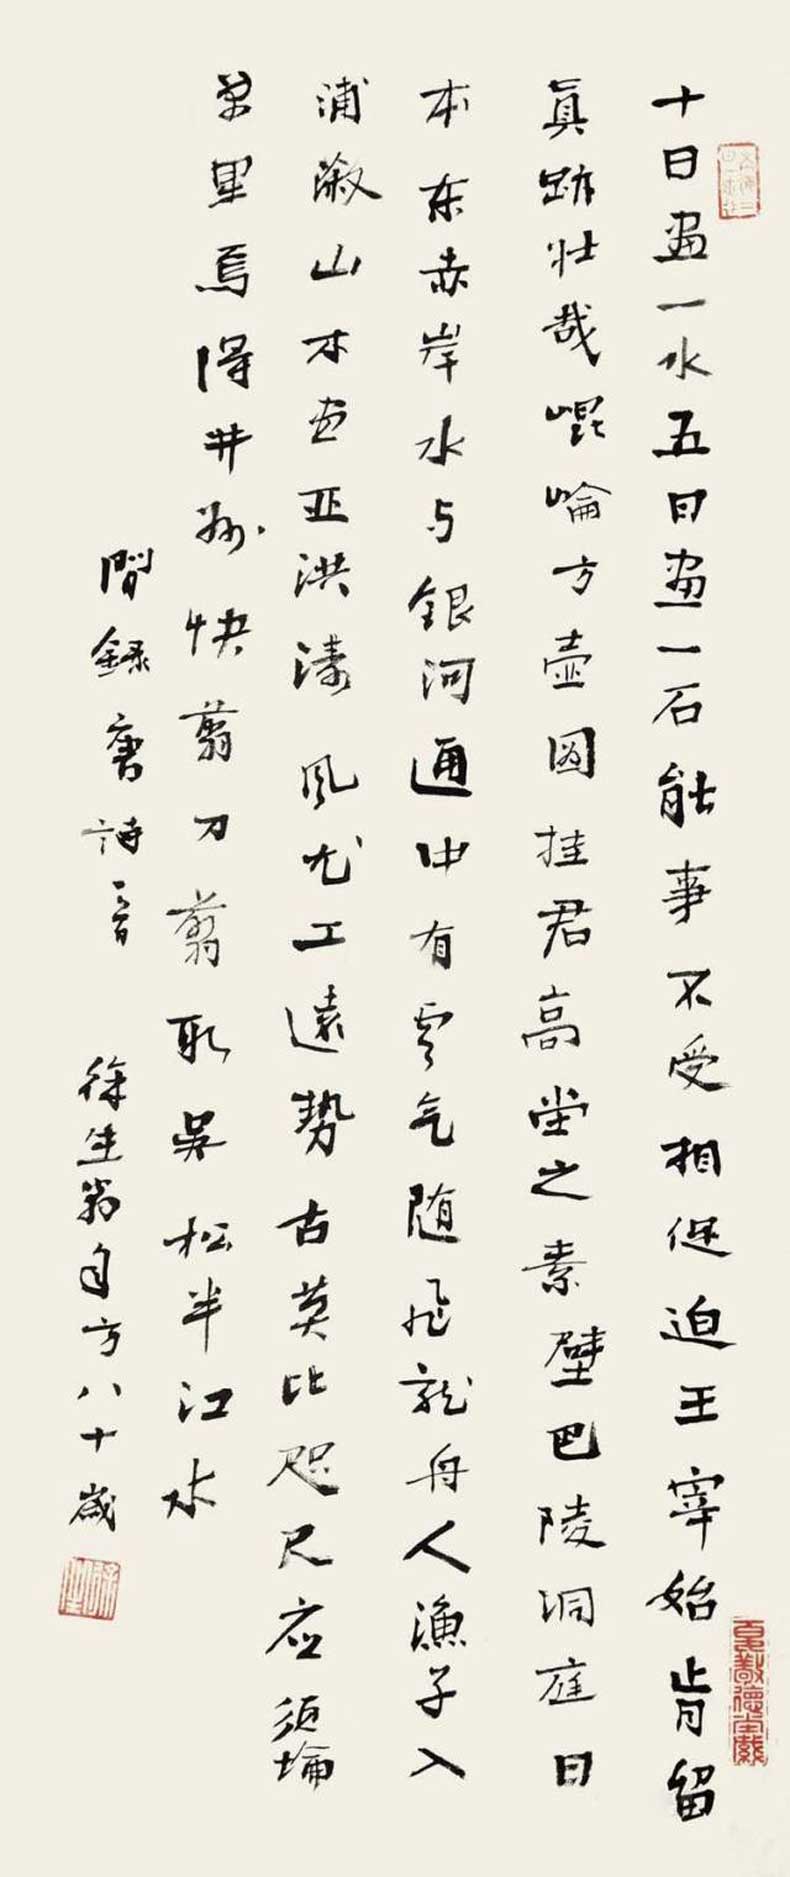 十日畫一水五日畫一石能事不受相促迫王宰始肯留
眞跡壮哉崐崘方壺圖挂君高堂之素壁巴陵洞庭日
本东赤岸水与銀河通中有雲气随飛龍舟人漁子入
浦溆山木盡亚洪濤風尤工遠勢古莫比咫尺应須論
萬里焉得并州快翦刀翦取吳松半江水
閒録唐詩一首 徐生翁年方八十歲